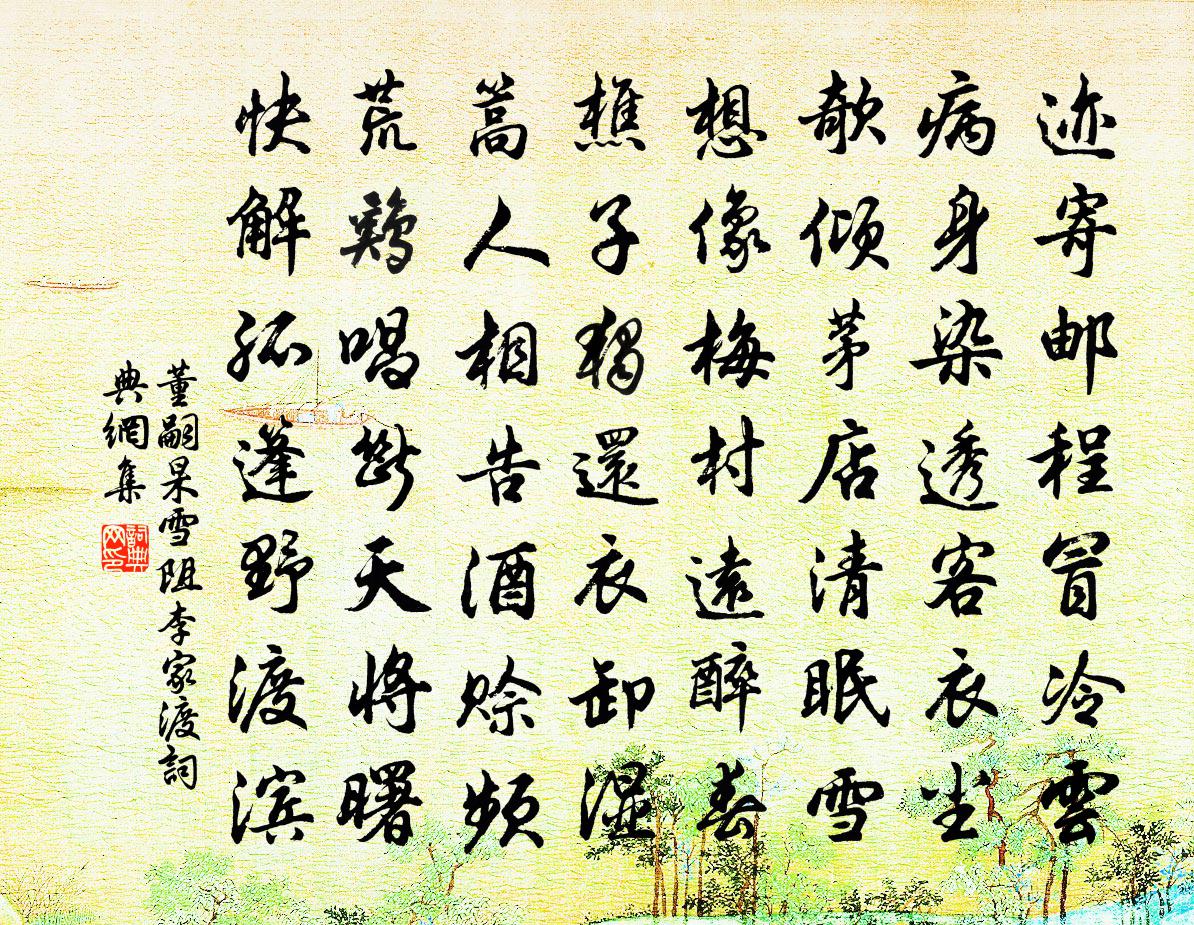 迹寄邮程冒冷雲
病身染透客衣尘
欹倾茅店清眠雪
想像梅村远醉春
樵子獨還衣卸湿
篙人相告酒赊频
荒鷄唱断天将曙
快解孤篷野渡滨
董嗣杲雪阻李家渡詞
典網集
詞典
网印